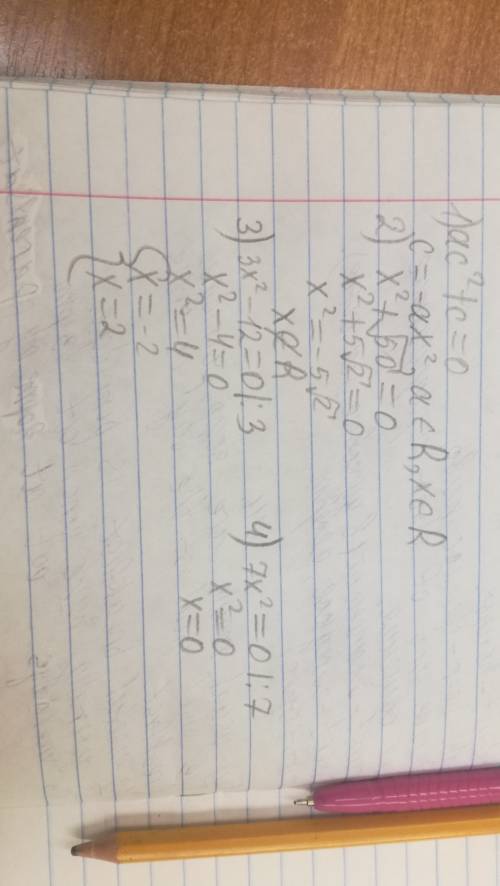 1) ac²+c=0
c=-ax² a∈R, x∈R
2) x²+√50=0
x²+5√2=0
x²=-5√2
x∉R
3) 3x²-12=0 |:3
x²-4=0
x²=4
{x=-2
{x=2
4) 7x²=0 |:7
x²=0
x=0